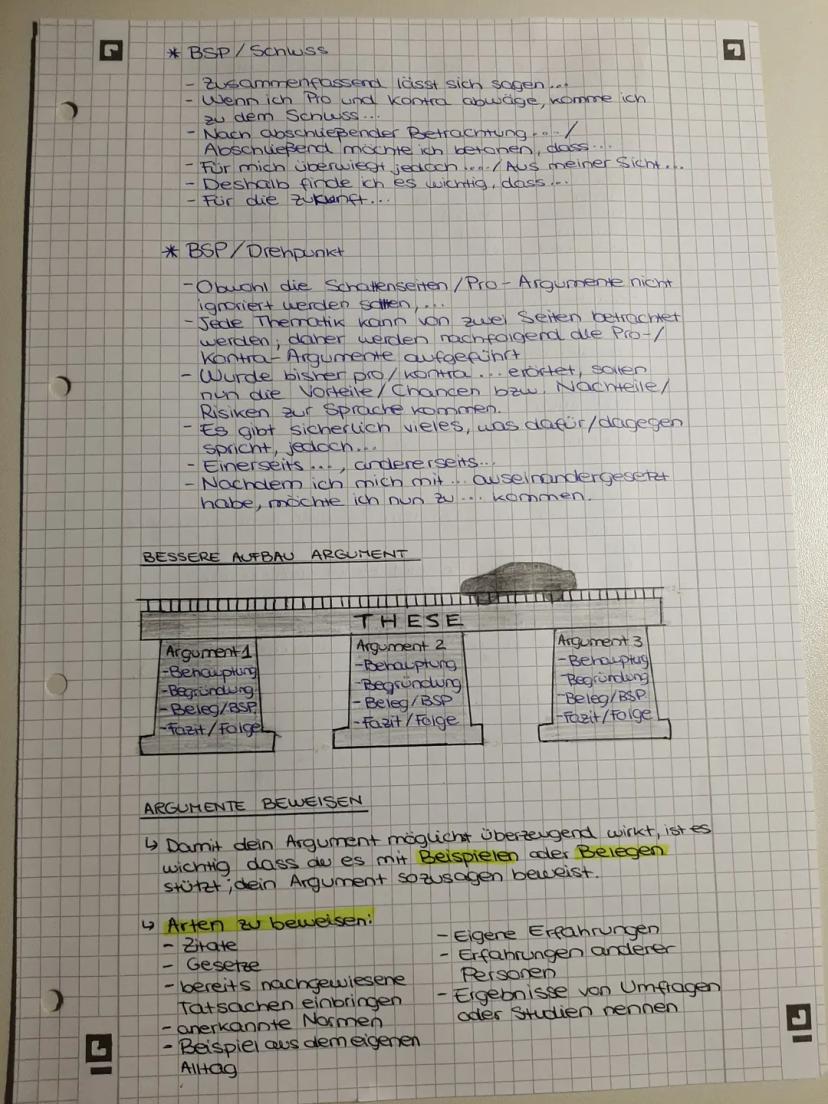 * BSP/Schluss
- Zusammenfassend lässt sich sagen...
- Wenn ich Pro und Kontra abwäge, komme ich
zu dem Schluss...
- Nach abschließender Betrachtung .../
Abschließend möchte ich betonen, dass...
- Für mich überwiegt jedoch .../Aus meiner Sicht...
- Deshalb finde ich es wichtig, dass...
- Für die Zukunft...
* BSP/Drehpunkt
- Obwohl die Schattenseiten/Pro-Argumente nicht
ignoriert werden sollen, ...
- Jede Thematik kann von zwei Seiten betrachtet
werden, daher werden nachfolgend die Pro-/
Kontra-Argumente aufgeführt
- Wurde bisher pro/kontra ... erörtet, sollen
nun die Vorteile/Chancen bzw. Nachteile/
Risiken zur Sprache kommen.
- Es gibt sicherlich vieles, was dafür/dagegen
spricht, jedoch...
- Einerseits ..., andererseits...
- Nachdem ich mich mit ... auseinandergesetzt
habe, möchte ich nun zu ... kommen.
BESSERE AUFBAU ARGUMENT
THESE
Argument 1
- Behauptung
- Begründung
- Beleg/BSP
- Fazit/Folge
Argument 2
- Behauptung
- Begründung
- Beleg/BSP
- Fazit/Folge
Argument 3
- Behauptug
- Begründung
- Beleg/BSP
- Fazit/Folge
ARGUMENTE BEWEISEN
↳ Damit dein Argument möglichst überzeugend wirkt, ist es
wichtig dass du es mit Beispielen oder Belegen
stützt; dein Argument sozusagen beweist.
↳ Arten zu beweisen:
- Zitate
- Gesetze
- bereits nachgewiesene
Tatsachen einbringen
- anerkannte Normen
- Beispiel aus dem eigenen
Alltag
- Eigene Erfahrungen
- Erfahrungen anderer
Personen
- Ergebnisse von Umfragen
oder Studien nennen